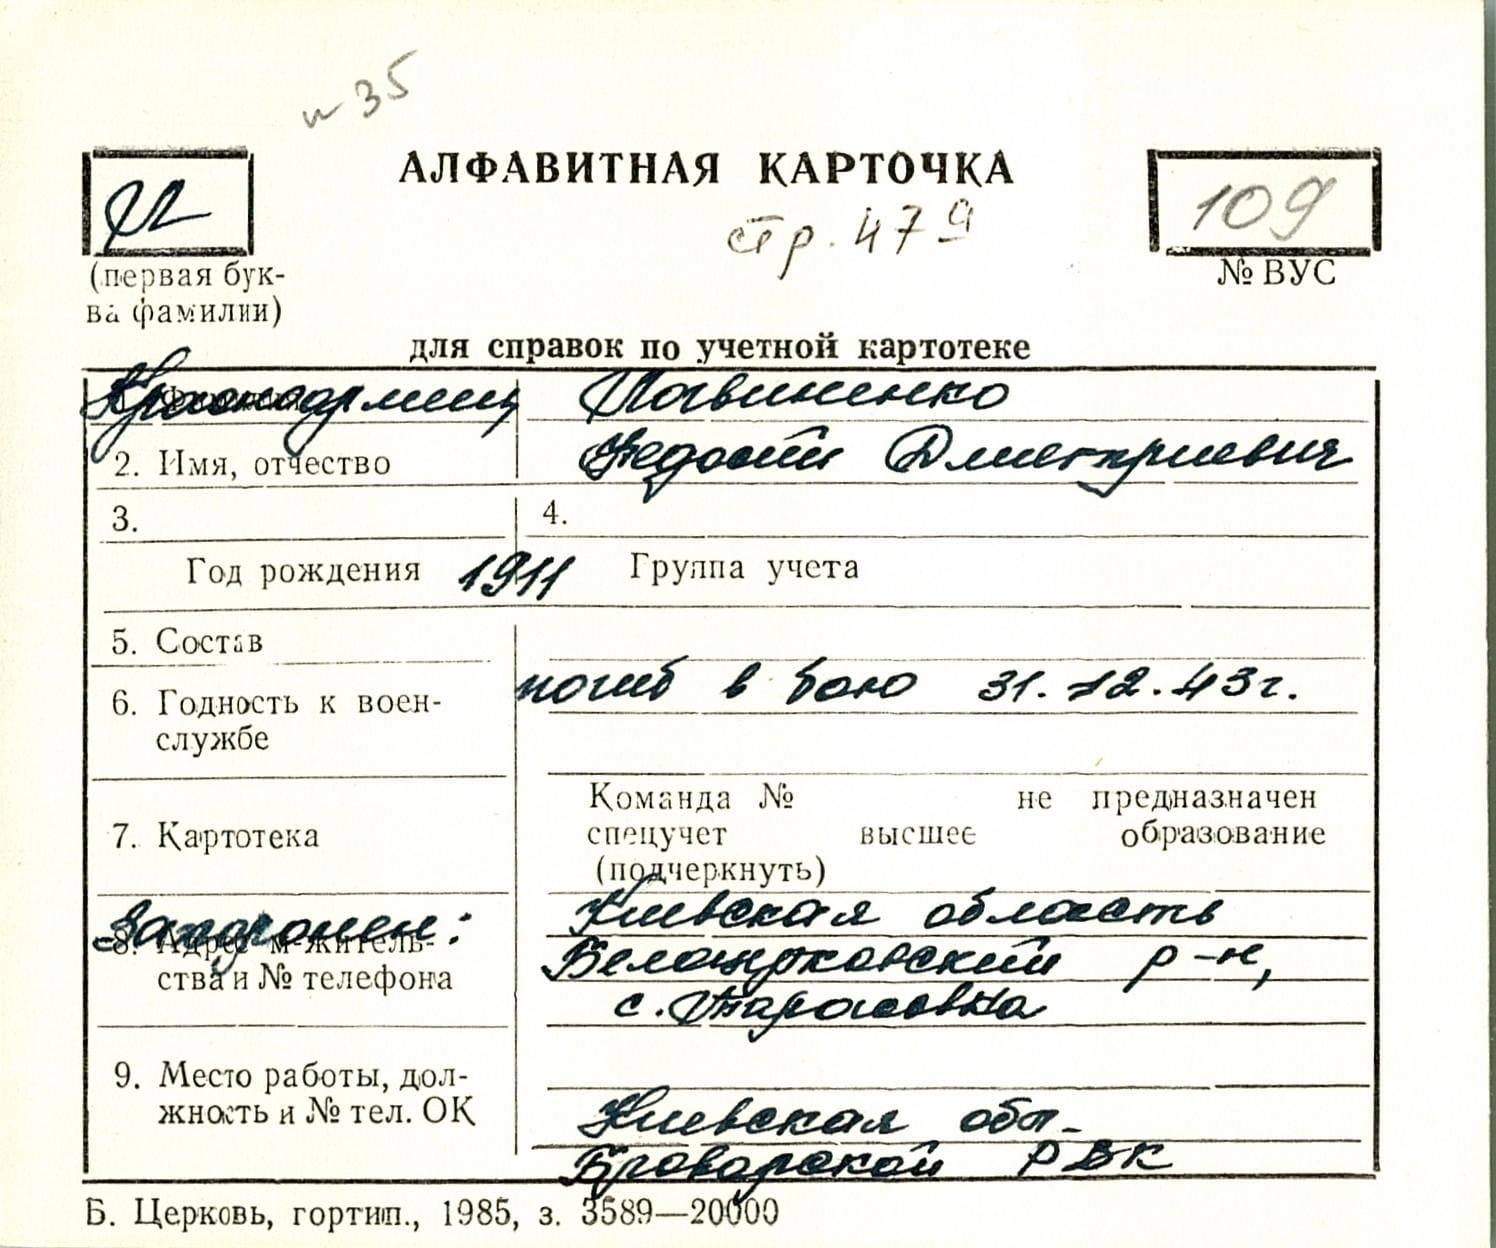 п 35
АЛФАВИТНАЯ КАРТОЧКА
109
стр. 479
(первая бук-
ва фамилии)
№ ВУС
для справок по учетной картотеке
Красноармеец Логвиненко
2. Имя, отчество Федосий Дмитриевич
3. 4.
Год рождения 1911 Группа учета
5. Состав
погиб в бою 31.12.43г.
6. Годность к воен-
службе
Команда № не предназначен
7. Картотека спецучет высшее образование
(подчеркнуть)
Захоронен: Киевская область
8. Адрес м-житель- Белоцерковский р-н,
ства и № телефона
с. Тарасовка
9. Место работы, дол-
жность и № тел. ОК Киевская обл.
Броварской РВК
Б. Церковь, гортип., 1985, з. 3589—20000